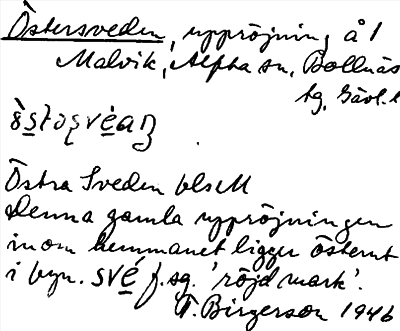 Östersveden, uppröjning å 1
Malvik, Alfta sn, Bollnäs
tg, Gävl. l
Östra Sveden blsM
Denna gamla uppröjningen
inom hemmanet ligger österut
i byn. své f. sg. 'röjd mark'.
T. Birgerson 1946